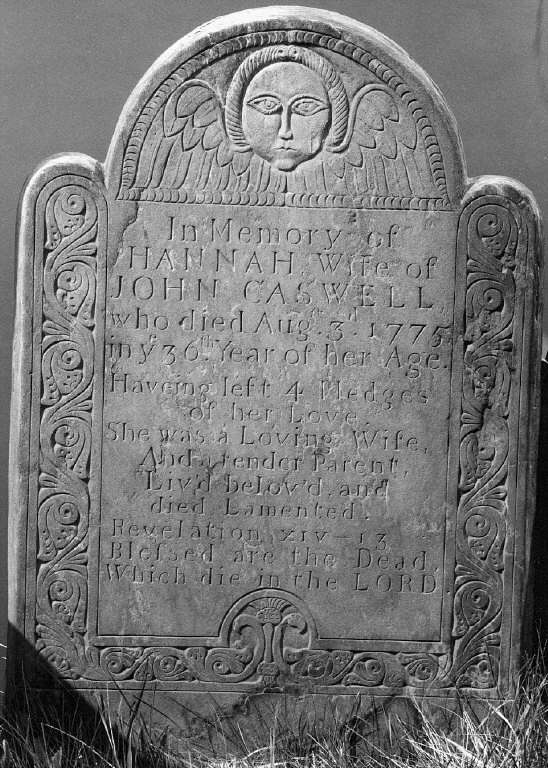 In Memory of
HANNAH, Wife of
JOHN CASWELL,
who died Augst. 3d. 1775,
in ye 36th Year of her Age.
Haveing left 4 Pledges
of her Love.
She was a Loving Wife,
And a tender Parent,
Liv'd belov'd, and
died Lamented.
Revelation XIV-13
Bleſsed are the Dead,
Which die in the LORD